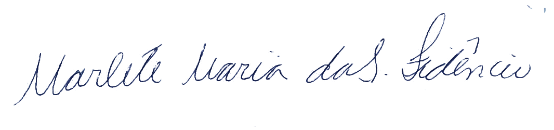 Marlete Maria da S. Fidêncio